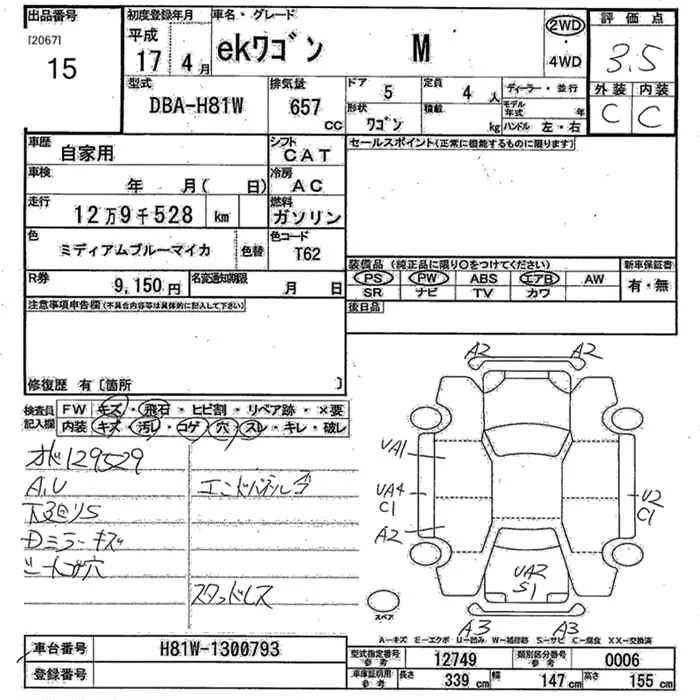 出品番号 初度登録年月 車名・グレード 2WD 評価点
[2067] 平成 ekワゴン M 3.5
15 17 4月 4WD 外装 内装
型式 排気量 ドア 5 定員 4 人 ディーラー・並行 C C
DBA-H81W 657 CC 形状 ワゴン 積載 kg モデル年式 年
ハンドル 左・右
車歴 自家用 シフト CAT セールスポイント(正常に機能するものに限ります)
車検 年 月( 日) 冷房 AC
走行 12万9千528 km 燃料 ガソリン
色 ミディアムブルーマイカ 色替 色コード T62
装備品 (純正品に限り○をつけてください) 新車保証書
R券 9,150円 名変通知期限 月 日 PS PW ABS エアB AW 有・無
SR ナビ TV カワ
注意事項申告欄(不具合内容等は具体的に記入して下さい) 後日品
修復歴 有〔箇所 〕
検査員記入欄 FW キズ・飛石・ヒビ割・リペア跡・×要
内装 キズ・汚レ・コゲ・穴・スレ・キレ・破レ
129529
A,U エンドパネル
下廻りS
Dミラーキズ
シート穴
スタッドレス
A2 A2
UA1
UA4 C1 U2 C1
A2
UA2 S1
スペア
A3 A3
A-キズ E-エクボ U-凹み W-補修跡 S-サビ C-腐食 XX-交換済
車台番号 H81W-1300793 型式指定番号 参考 12749 類別区分番号 参考 0006
登録番号 車庫証明用 参考 長さ 339 cm 幅 147 cm 高さ 155 cm